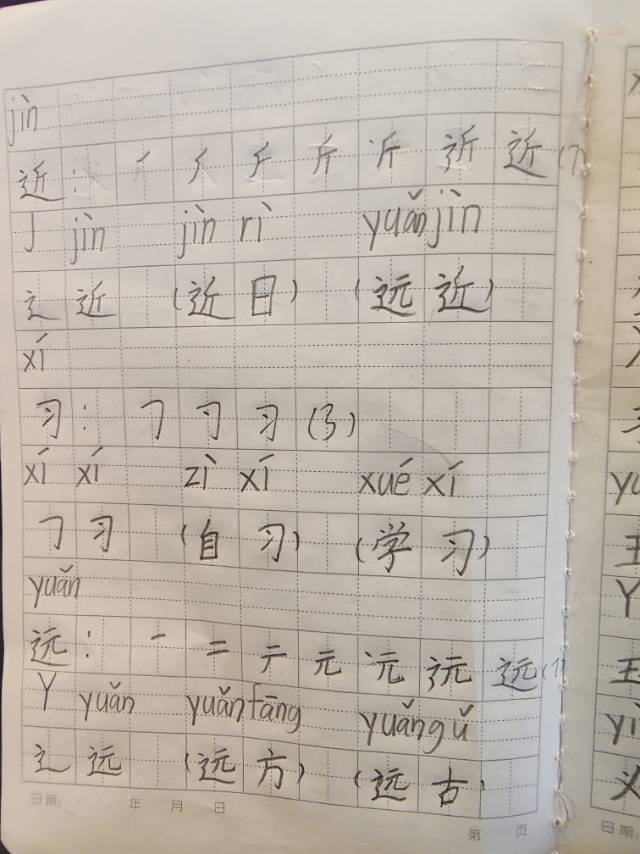 jìn
近：近(7
J jìn jìn rì yuǎn jìn
辶 近 (近日) (远近)
xí
习：㇆ 习 (3)
xí xí zì xí xué xí
㇆ 习 (自习) (学习)
yuǎn
远：一 二 テ 元 远(7
Y yuǎn yuǎn fāng yuǎn gǔ
辶 远 (远方) (远古)
日期： 年 月 日
第 页
王
Y
王
yì
义
日期：